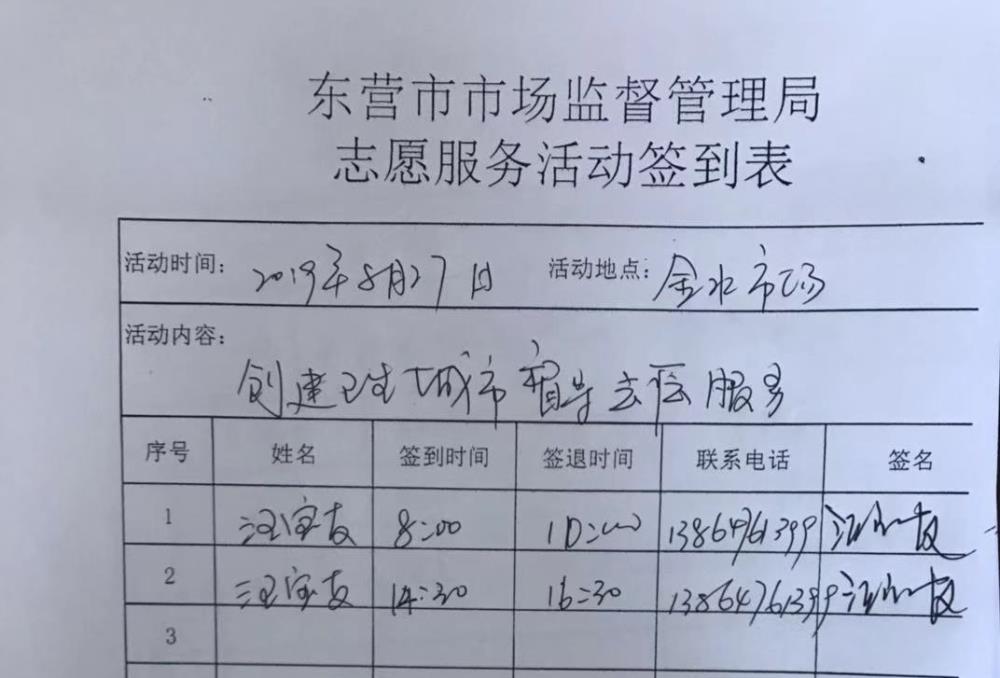 东营市市场监督管理局
志愿服务活动签到表
活动时间: 2019年8月27日 活动地点: 金水市场
活动内容:
创建卫生城市督导志愿服务
序号 姓名 签到时间 签退时间 联系电话 签名
1 汪宝友 8:00 10:00 13864761399
2 汪宝友 14:30 16:30 13864761399
3